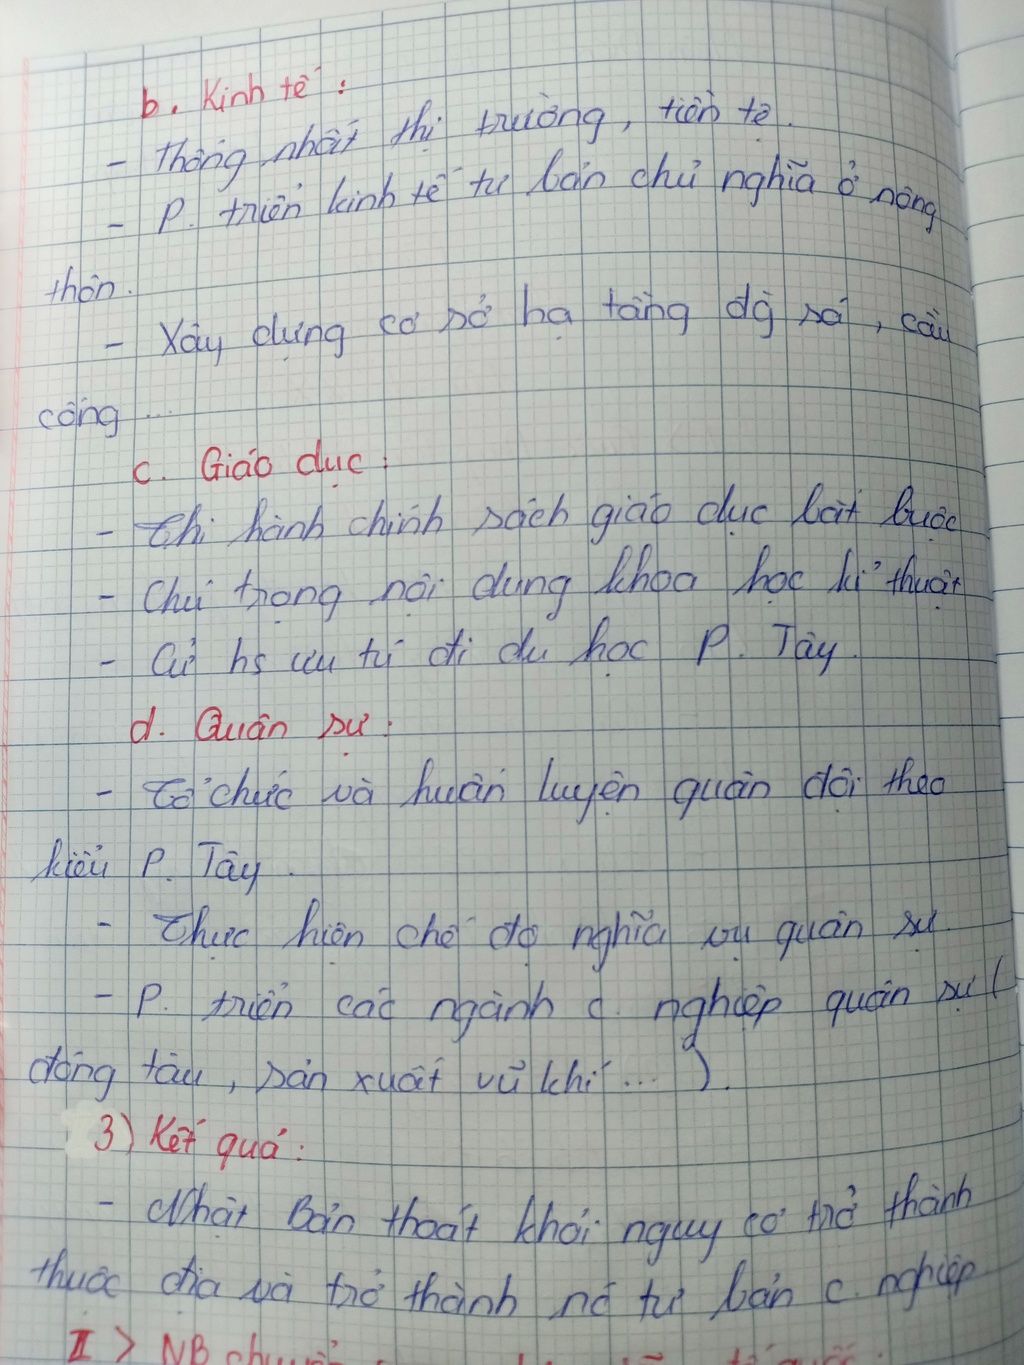 b. Kinh tế :
- Thống nhất thị trường, tiền tệ.
- P. triển kinh tế tư bản chủ nghĩa ở nông
thôn.
- Xây dựng cơ sở hạ tầng đg sá, cầu
cống ...
c. Giáo dục :
- Thi hành chính sách giáo dục bắt buộc
- Chú trọng nội dung khoa học kĩ thuật
- Cử hs ưu tú đi du học P. Tây.
d. Quân sự :
- Tổ chức và huấn luyện quân đội theo
kiểu P. Tây.
- Thực hiện chế độ nghĩa vụ quân sự.
- P. triển các ngành c. nghiệp quân sự (
đóng tàu, sản xuất vũ khí ... ).
3) Kết quả :
- Nhật Bản thoát khỏi nguy cơ trở thành
thuộc địa và trở thành nc tư bản c. nghiệp
II > NB chuyển